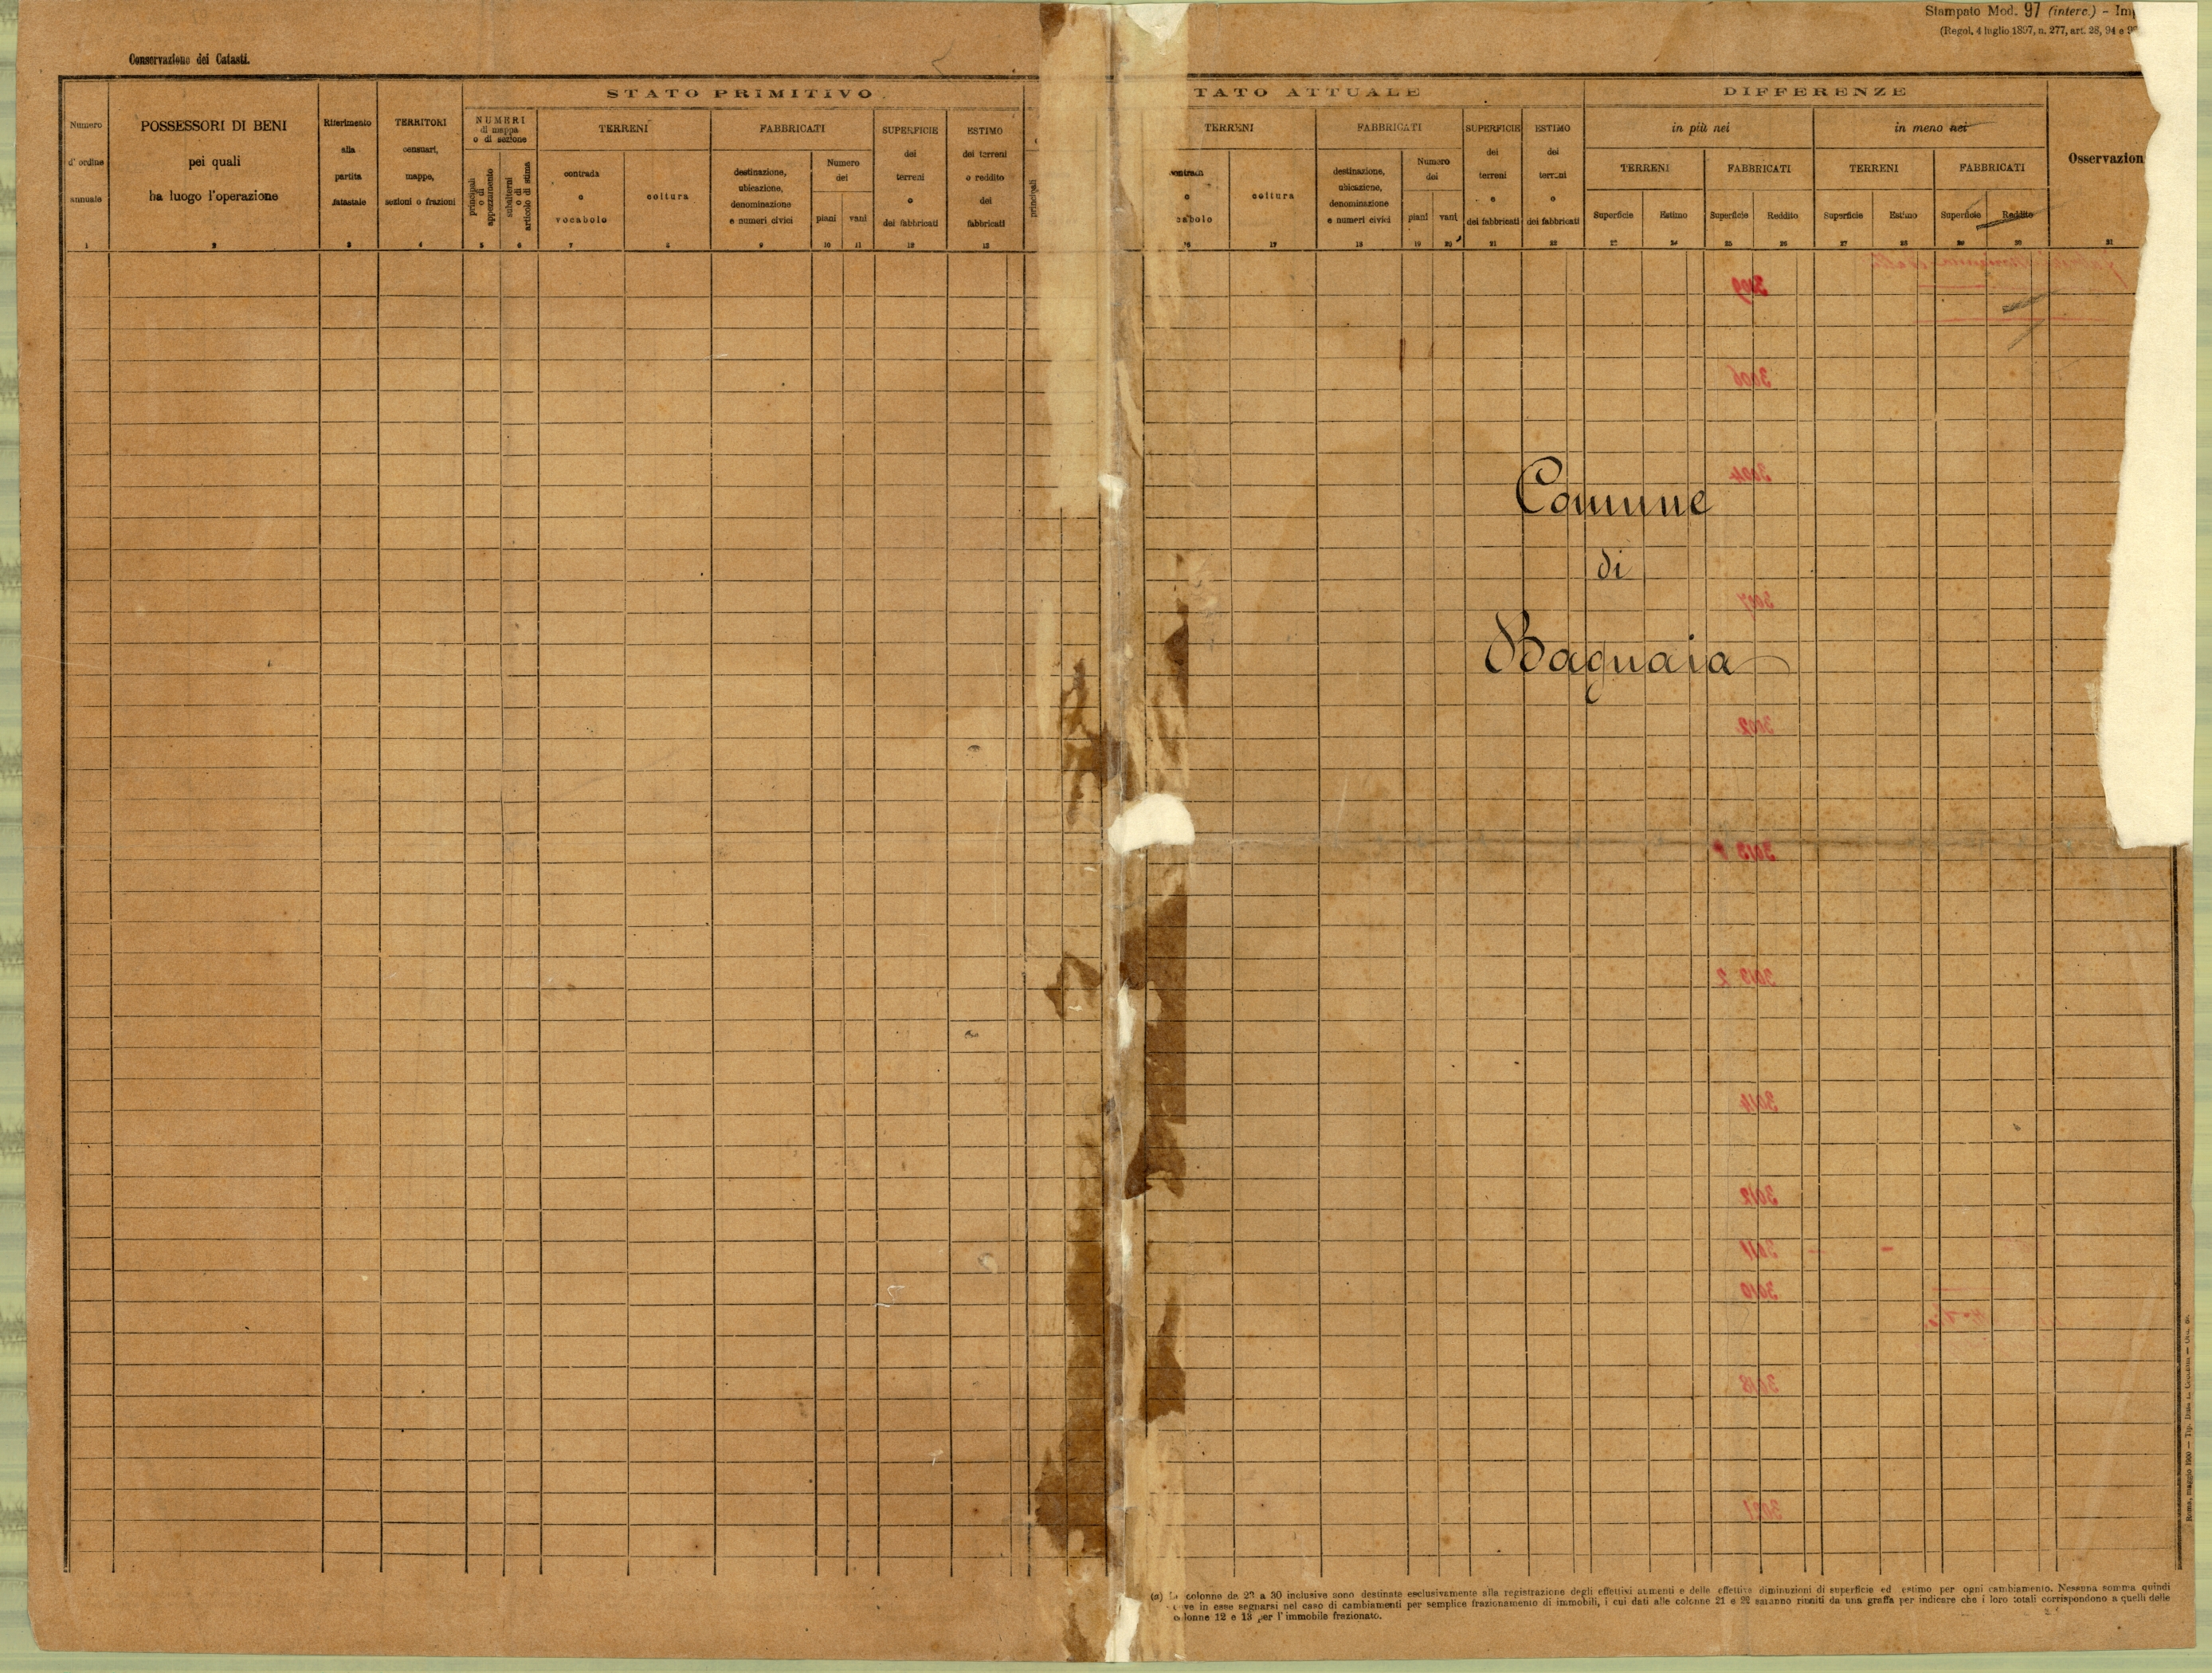 Stampato Mod. 97 (interc.) - Im
(Regol. 4 luglio 1897, n. 277, art. 28, 94 e
Conservazione dei Catasti.
STATO PRIMITIVO
TATO ATTUALE
DIFFERENZE
Numero
d'ordine
annuale
1
POSSESSORI DI BENI
pei quali
ha luogo l'operazione
2
Riferimento
alla
partita
catastale
3
TERRITORI
censuari,
mappe,
sezioni o frazioni
4
NUMERI
di mappa
o di sezione
principali
o di
appezzamento
5
subalterni
o di
articolo di stima
6
TERRENI
contrada
o
vocabolo
7
coltura
8
FABBRICATI
destinazione,
ubicazione,
denominazione
e numeri civici
9
Numero
dei
piani
10
vani
11
SUPERFICIE
dei
terreni
o
dei fabbricati
12
ESTIMO
dei terreni
o reddito
dei
fabbricati
13
principali
TERRENI
contrada
o
cabolo
16
coltura
17
FABBRICATI
destinazione,
ubicazione,
denominazione
e numeri civici
18
Numero
dei
piani
19
vani
20
SUPERFICIE
dei
terreni
o
dei fabbricati
21
ESTIMO
dei
terreni
o
dei fabbricati
22
in più nei
TERRENI
Superficie
23
Estimo
24
FABBRICATI
Superficie
25
Reddito
26
in meno nei
TERRENI
Superficie
27
Estimo
28
FABBRICATI
Superficie
29
Reddito
30
Osservazion
31
3006
3004
Comune
di
3007
Bagnaia
3002
3013
3013 2
3014
3012
3011
3010
3018
3021
(a) Le colonne da 23 a 30 inclusive sono destinate esclusivamente alla registrazione degli effettivi aumenti e delle effettive diminuzioni di superficie ed estimo per ogni cambiamento. Nessuna somma quindi
deve in esse segnarsi nel caso di cambiamenti per semplice frazionamento di immobili, i cui dati alle colonne 21 e 22 saranno riuniti da una graffa per indicare che i loro totali corrispondono a quelli delle
colonne 12 e 13 per l'immobile frazionato.
Roma, maggio 1900 — Tip. Ditta L. Cecchini